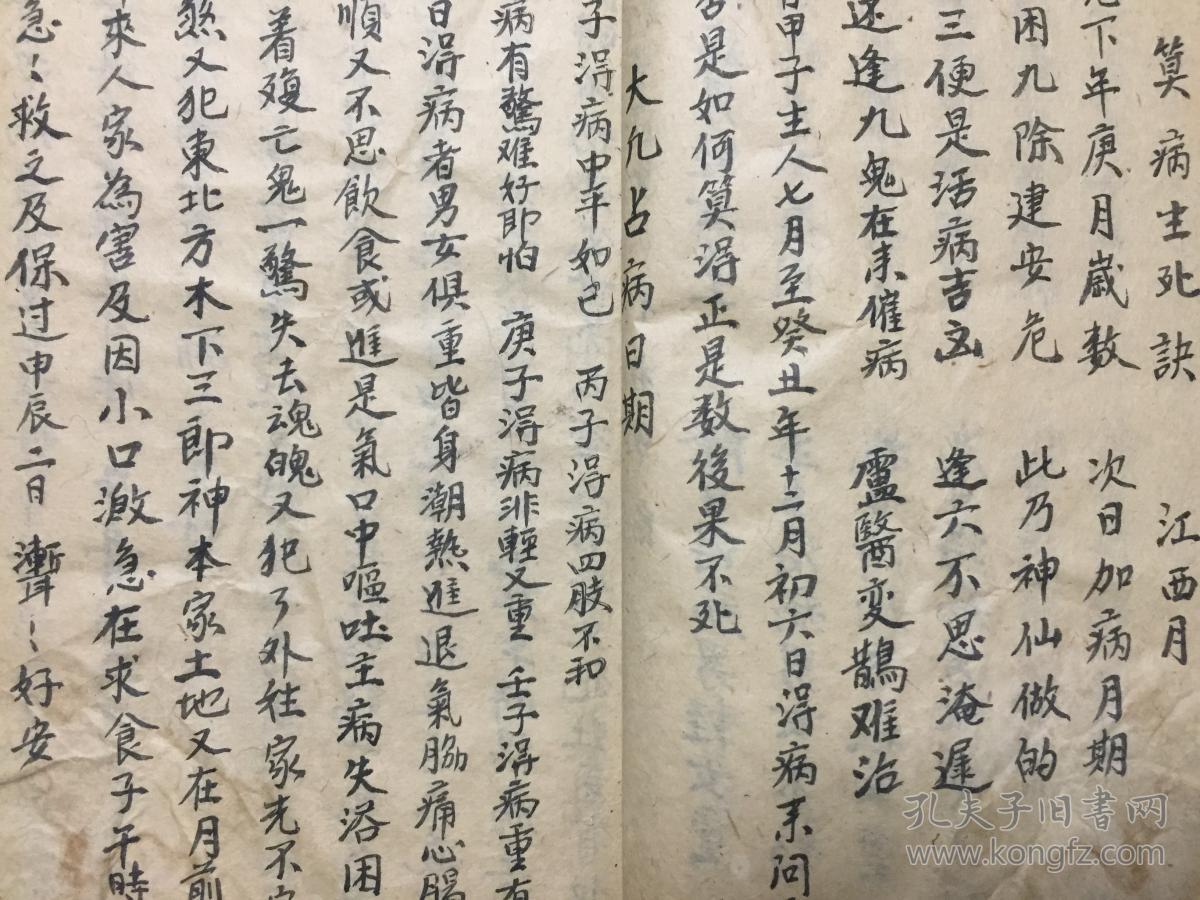 算病生死訣 江西月
下年庚月歲数 次日加病月期
困九除建安危 此乃神仙做的
三便是活病吉凶 逢六不思淹遲
逢九鬼在未催病 盧醫变鵲难治
甲子生人七月至癸丑年十二月初六日淂病未問
是如何算淂正是数後果不死
大九占病日期
子淂病中平如己 丙子淂病四肢不和
病有驚难好即怕 庚子淂病非輕又重 壬子淂病重有
日淂病者男女俱重皆身潮熱進退氣脇痛心腸
順又不思飲食或進是氣口中嘔吐主病失落困
着殀亡鬼一驚失去魂魄又犯了外姓家先不
煞又犯東北方木下三郎神本家土地又在月前
來人家為害及因小口激急在求食子午時
急〻救之及保过申辰二日漸〻好安
孔夫子旧书网
www.kongfz.com